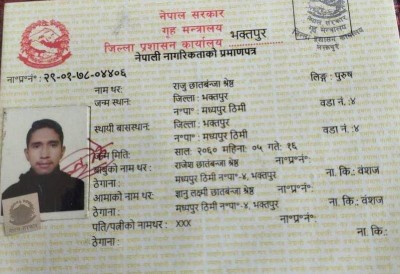 नेपाल सरकार
गृह मन्त्रालय
जिल्ला प्रशासन कार्यालय भक्तपुर
नेपाली नागरिकताको प्रमाणपत्र
नेपाल सरकार
गृह मन्त्रालय
भक्तपुर
ना॰प्र॰नं॰: २९-०१-७८-०४४०६
लिङ्ग: पुरुष
नाम थर: राजु छातबन्जा श्रेष्ठ
जन्म स्थान: जिल्ला: भक्तपुर
न॰पा॰: मध्यपुर ठिमी वडा नं.:४
स्थायी बासस्थान: जिल्ला: भक्तपुर
न॰पा॰: मध्यपुर ठिमी वडा नं.:४
जन्म मिति: साल: २०६० महिना: ०५ गते: १६
बाबुको नाम थर: राजेश छातबन्जा श्रेष्ठ ना॰प्र॰नं॰:
ठेगाना: मध्यपुर ठिमी न॰पा॰-४, भक्तपुर ना. कि.: वंशज
आमाको नाम थर: ज्ञानु लक्ष्मी छातबन्जा श्रेष्ठ ना॰प्र॰नं॰:
ठेगाना: मध्यपुर ठिमी न॰पा॰-४, भक्तपुर. ना. कि.: वंशज
पति/पत्नीको नामथर: xxx ना॰प्र॰नं॰:
ठेगाना: ना. कि.: